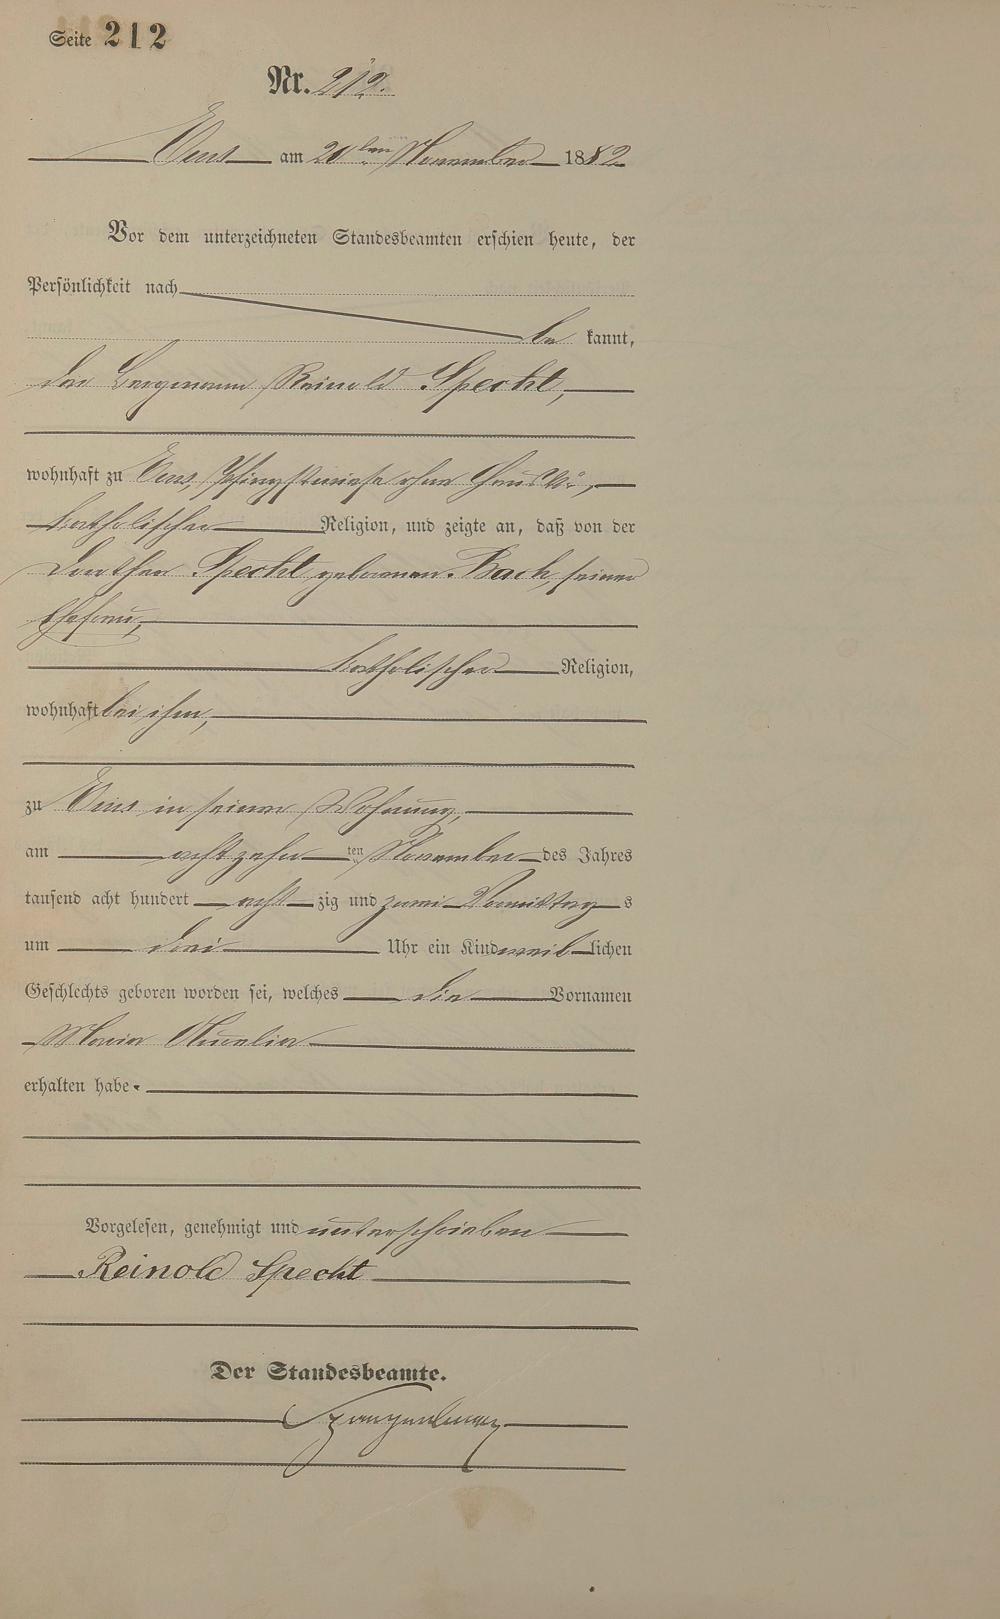 Seite 212
Nr. 212.
Ems am 20ten November 1882
Vor dem unterzeichneten Standesbeamten erschien heute, der
Persönlichkeit nach
be kannt,
der Bergmann Reinold Specht,
wohnhaft zu Ems, Pfingstwiese ohne Haus No,
katholischer Religion, und zeigte an, daß von der
Dorothea Specht geborenen Bach, seiner
Ehefrau,
katholischer Religion,
wohnhaft bei ihm,
zu Ems in seiner Wohnung,
am achtzehn ten November des Jahres
tausend acht hundert acht zig und zwei Vormittag s
um drei Uhr ein Kind weib lichen
Geschlechts geboren worden sei, welches die Vornamen
Maria Amalia
erhalten habe.
Vorgelesen, genehmigt und unterschrieben
Reinold Specht
Der Standesbeamte.